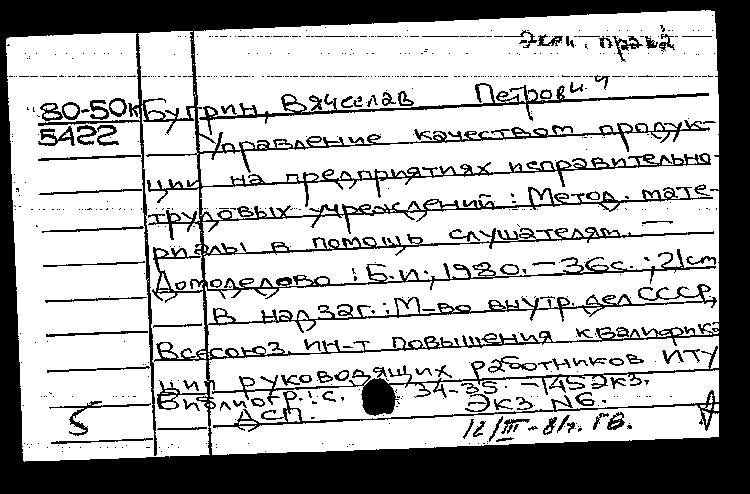 Экон. права
80-50к Бугрин, Вячеслав Петрович
5422 Управление качеством продук-
ции на предприятиях исправительно-
трудовых учреждений : Метод. мате-
риалы в помощь слушателям. —
Домодедово : Б.и., 1980. - 36с. ; 21см
В надзаг.: М-во внутр. дел СССР,
Всесоюз. ин-т повышения квалифика-
ции руководящих работников ИТУ
Библиогр.: с. 34-35. - 145экз.
5 ДСП. Экз. №6.
12/III-81г. ГВ.